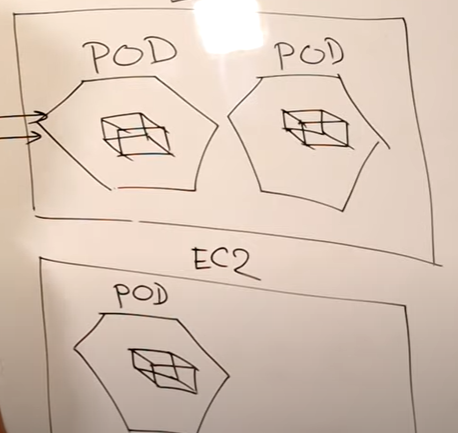 POD POD
EC2
POD